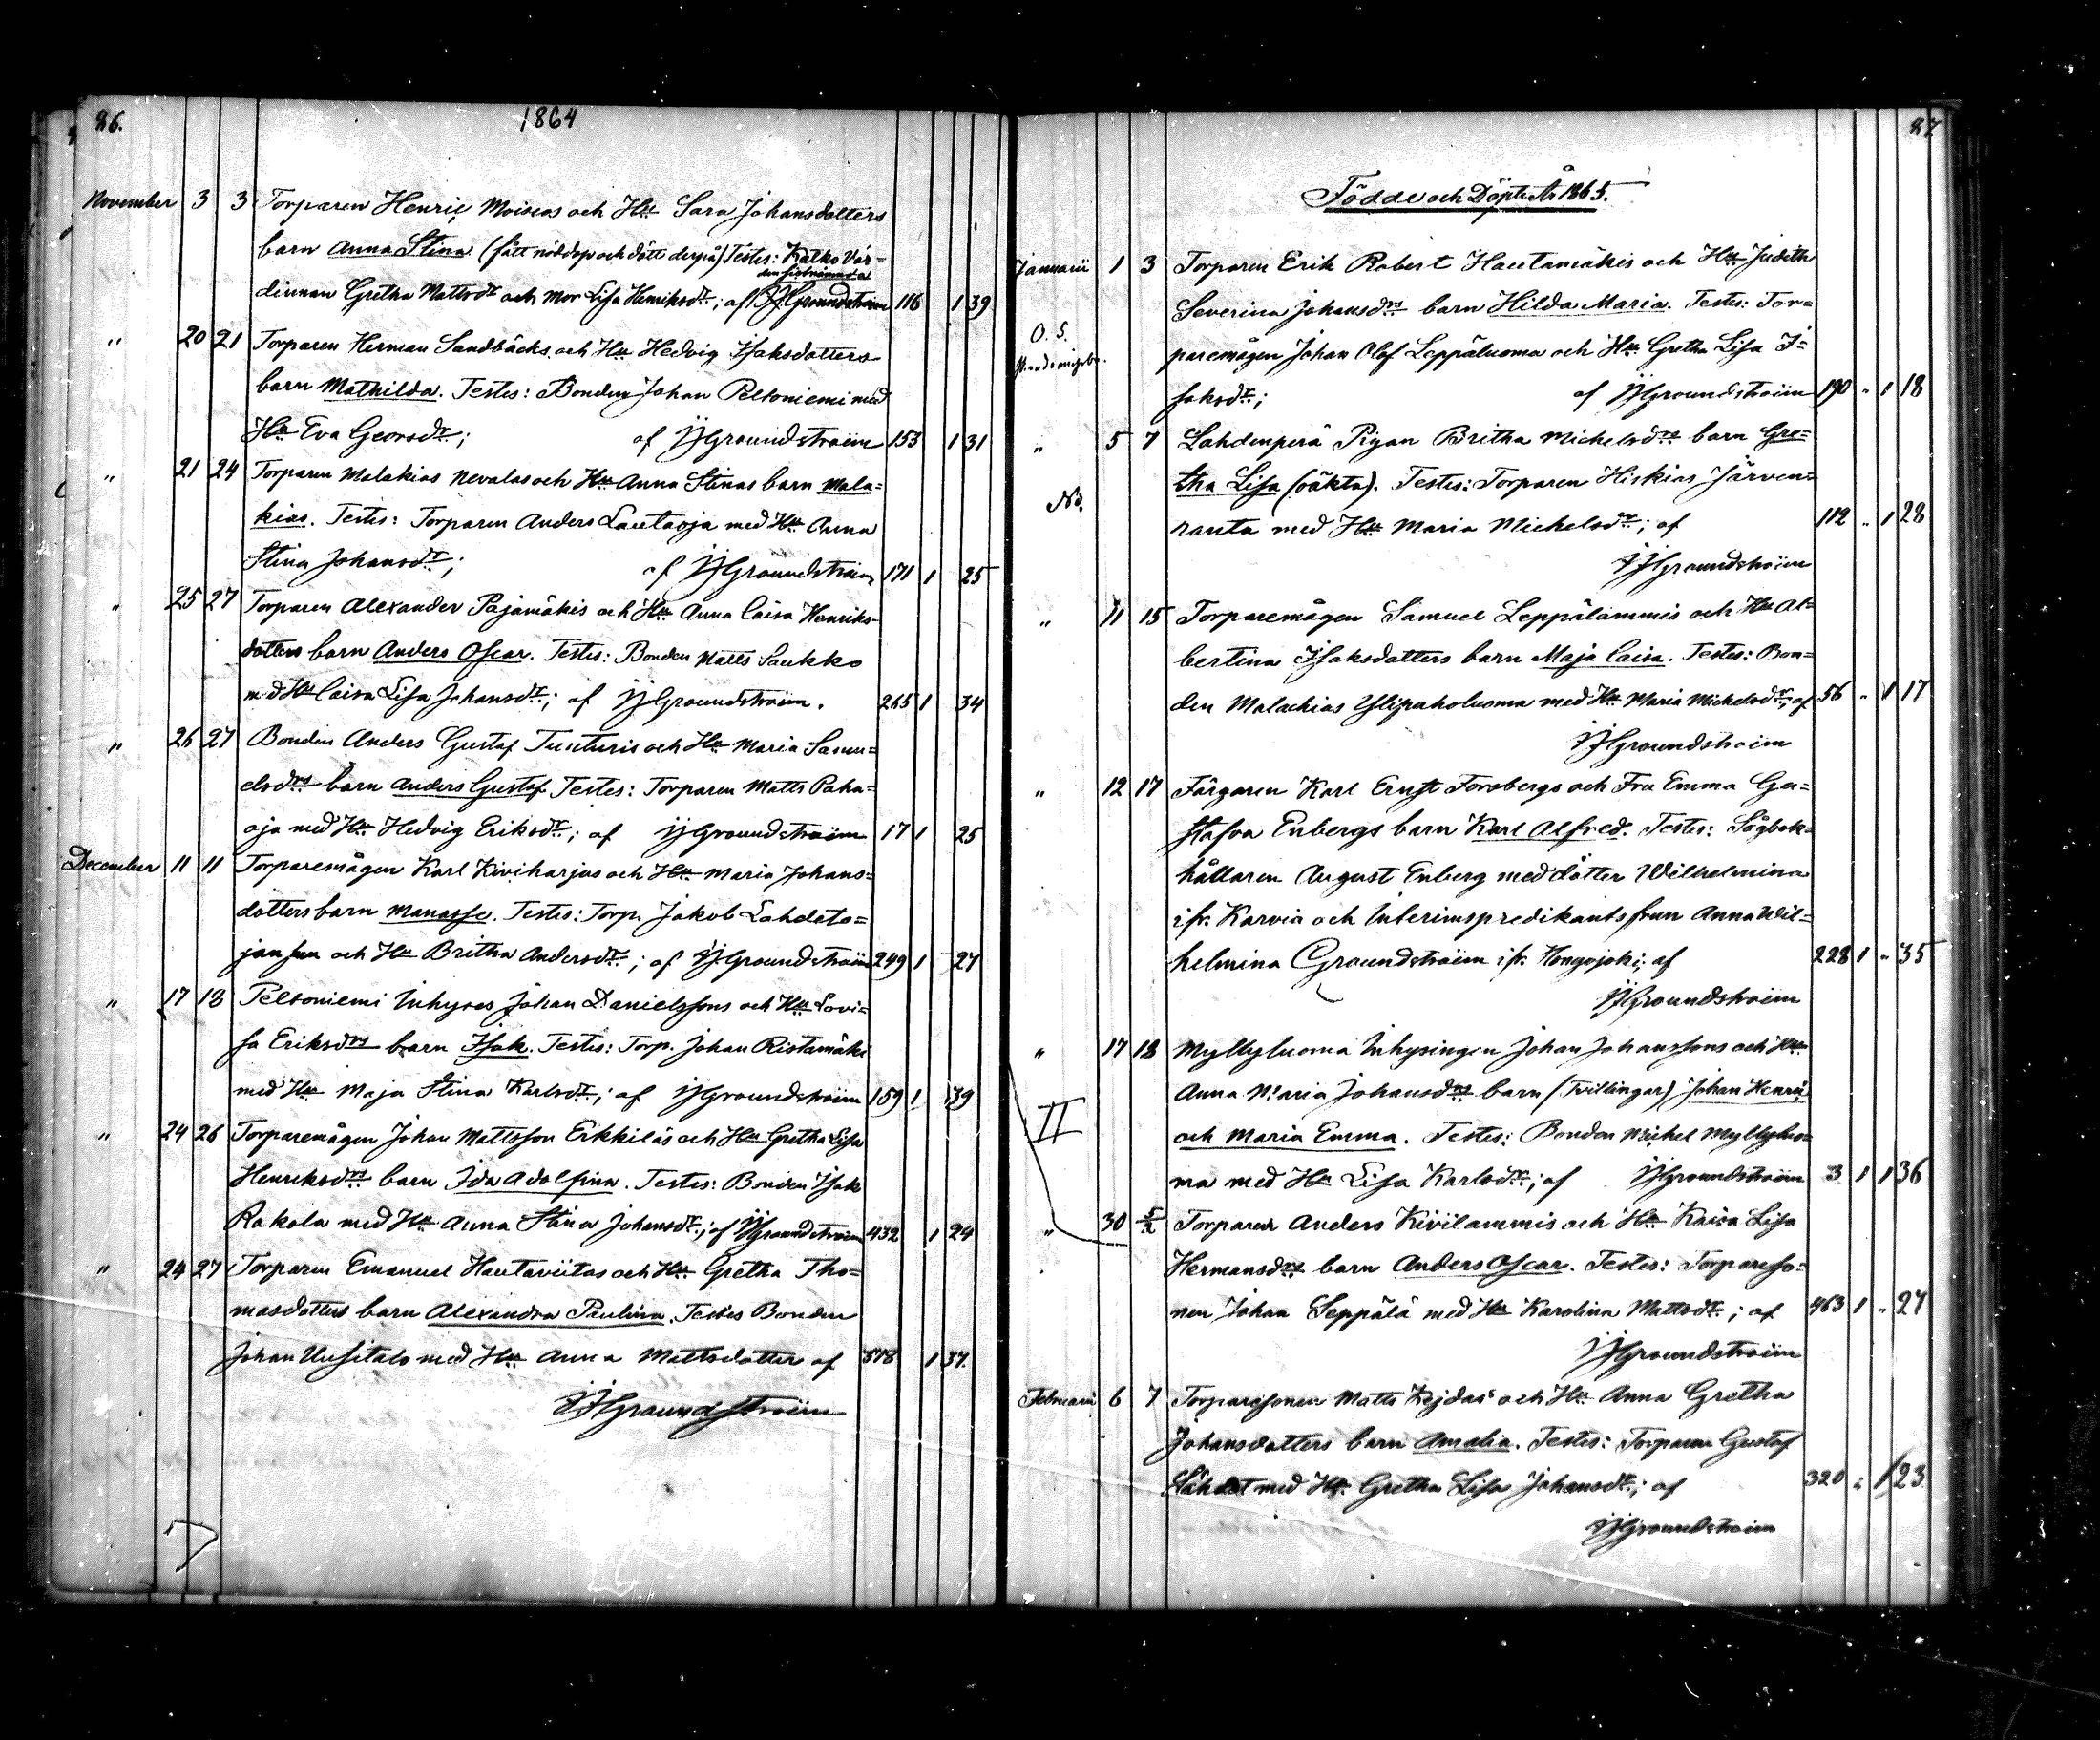 26.
1864
November 3 3 Torparen Henric Moisios och Hu Sara Johansdotters
barn Anna Stina (fått nöddop och dött derpå) Testes: Katko Vär=
den sistnämnda
dinnan Gretha Mattsdr och mor Lisa Henriksdr; af JJGroundstroëm 116 1 39
" 20 21 Torparen Herman Sandbäcks och Hu Hedvig Isaksdotters
barn Mathilda. Testes: Bonden Johan Peltoniemi med
Hu Eva Georsdr; af JJGroundstroëm 153 1 31
" 21 24 Torparen Malakias Nevalas och Hu Anna Stinas barn Mala=
kias. Testes: Torparen Anders Lautaoja med Hu Anna
Stina Johansdr; af JJGroundstroëm 171 1 25
" 25 27 Torparen Alexander Pajamäkis och Hu Anna Caisa Henriks-
dotters barn Anders Oscar. Testes: Bonden Matts Saukko
med Hu Caisa Lisa Johansdr; af JJGroundstroëm. 265 1 34
" 26 27 Bonden Anders Gustaf Tunturis och Hu Maria Samu=
elsdrs barn Anders Gustaf. Testes: Torparen Matts Paha=
oja med Hu Hedvig Eriksdr; af JJGroundstroëm 17 1 25
December 11 11 Torparemågen Karl Kiviharjus och Hu Maria Johans=
dotters barn Manasse. Testes: Torp. Jakob Lahdeto=
jan sun och Hu Britha Andersdr; af JJGroundstroëm 249 1 27
" 17 18 Peltoniemi Inhyses Johan Danielssons och Hu Lovi=
sa Eriksdrs barn Isak. Testes: Torp. Johan Ristamäki
med Hu Maja Stina Karlsdr; af JJGroundstroëm 159 1 39
" 24 26 Torparemågen Johan Mattsson Erkkiläs och Hu Gretha Lisa
Henriksdrs barn Ida Adolfina. Testes: Bonden Isak
Rakola med Hu Anna Stina Johansdr; af JJGroundstroëm 432 1 24
" 24 27 Torparen Emanuel Hautaviitas och Hu Gretha Tho=
masdotters barn Alexandra Paulina. Testes Bonden
Johan Uusitalo med Hu Anna Mattsdotter af 378 1 37.
JJGroundstroëm
27
Födde och Döpte År 1865.
Januarii 1 3 Torparen Erik Robert Hautamäkis och Hu Judith
Severina Johansdrs barn Hilda Maria. Testes: Tor=
O. S. paremågen Johan Olof Leppäluoma och Hu Gretha Lisa I=
saksdr; af JJGroundstroëm 190 " 1 18
" 5 7 Lahdenperä Pigan Britha Michelsdrs barn Gre=
tha Lisa (oäkta). Testes: Torparen Hiskias Järven=
No. ranta med Hu Maria Michelsdr; af 112 " 1 28
JJGroundstroëm
" 11 15 Torparemågen Samuel Leppälammis och Hu Al=
bertina Isaksdotters barn Maja Caisa. Testes: Bon=
den Malachias Ylipaholuoma med Hu Maria Michelsdr; af 56 " 1 17
JJGroundstroëm
" 12 17 Färgaren Karl Ernst Forsbergs och Fru Emma Gu=
stafva Enbergs barn Karl Alfred. Testes: Sågbok=
hållaren August Enberg med dotter Wilhelmina
ifr. Karvia och Interimspredikantsfrun Anna Wil=
helmina Groundstroëm ifr. Hongojoki; af 228 1 " 35
JJGroundstroëm
" 17 18 Myllyluoma Inhysingen Johan Johanssons och Hu
Anna Maria Johansdrs barn (Tvillingar) Johan Henric
II och Maria Emma. Testes: Bonden Michel Myllyluo=
ma med Hu Lisa Karlsdr; af JJGroundstroëm 3 1 1 36
" 30 5/2 Torparen Anders Kivilammis och Hu Kaisa Lisa
Hermansdrs barn Anders Oscar. Testes: Torpareso=
nen Johan Seppälä med Hu Karolina Mattsdr; af 463 1 " 27
JJGroundstroëm
Februarii 6 7 Torparesonen Matts Kejdas och Hu Anna Gretha
Johansdotters barn Amalia. Testes: Torparen Gustaf
Lähdet med Hu Gretha Lisa Johansdr; af 320 " 1 23
JJGroundstroëm